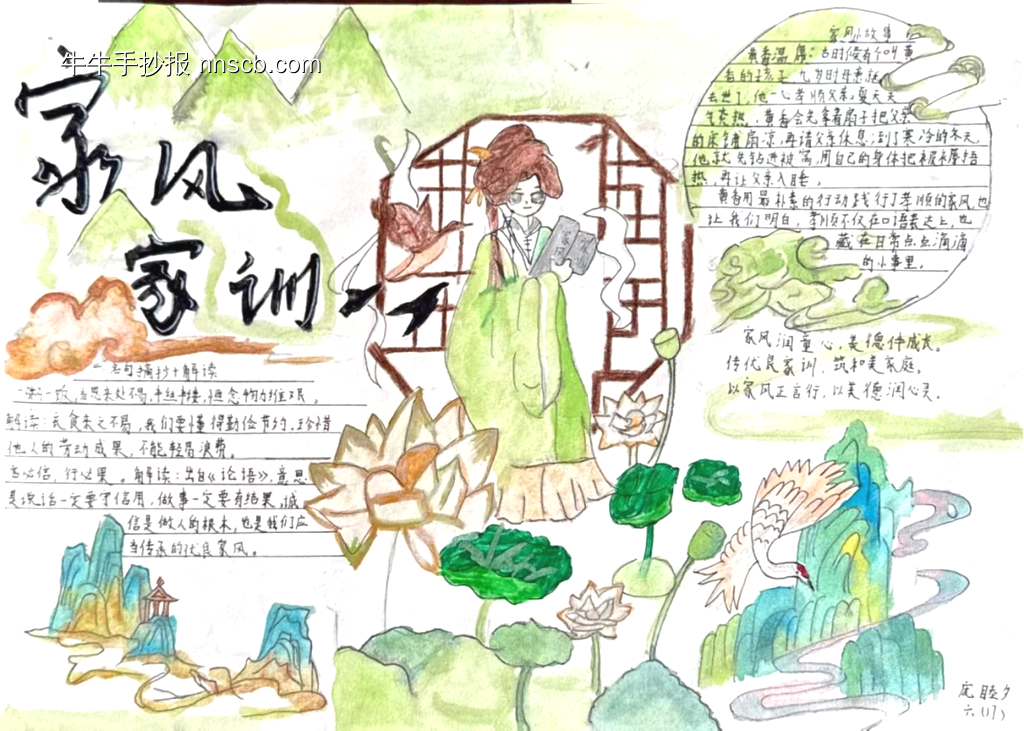 牛牛手抄报 nnscb.com
家风
家训
名句摘抄+解读
一粥一饭,当思来处不易,半丝半缕,恒念物力维艰。
解读:衣食来之不易,我们要懂得勤俭节约,珍惜
他人的劳动成果,不能轻易浪费。
言必信,行必果。解读:出自《论语》,意思
是说话一定要守信用,做事一定要有结果,诚
信是做人的根本,也是我们应
当传承的优良家风。
家风
家训
家风小故事
黄香温席:古时候有个叫黄
香的孩子,九岁时母亲就
去世了,他一心孝顺父亲,夏天天
气炎热,黄香会先拿着扇子把父亲
的床铺扇凉,再请父亲休息;到了寒冷的冬天,
他就先钻进被窝,用自己的身体把被褥捂
热,再让父亲入睡。
黄香用最朴素的行动践行了孝顺的家风,也
让我们明白,孝顺不仅在口语表达上,也
藏在日常点点滴滴
的小事里。
家风润童心,美德伴成长。
传优良家训,筑和美家庭。
以家风正言行,以美德润心灵。
六(1)